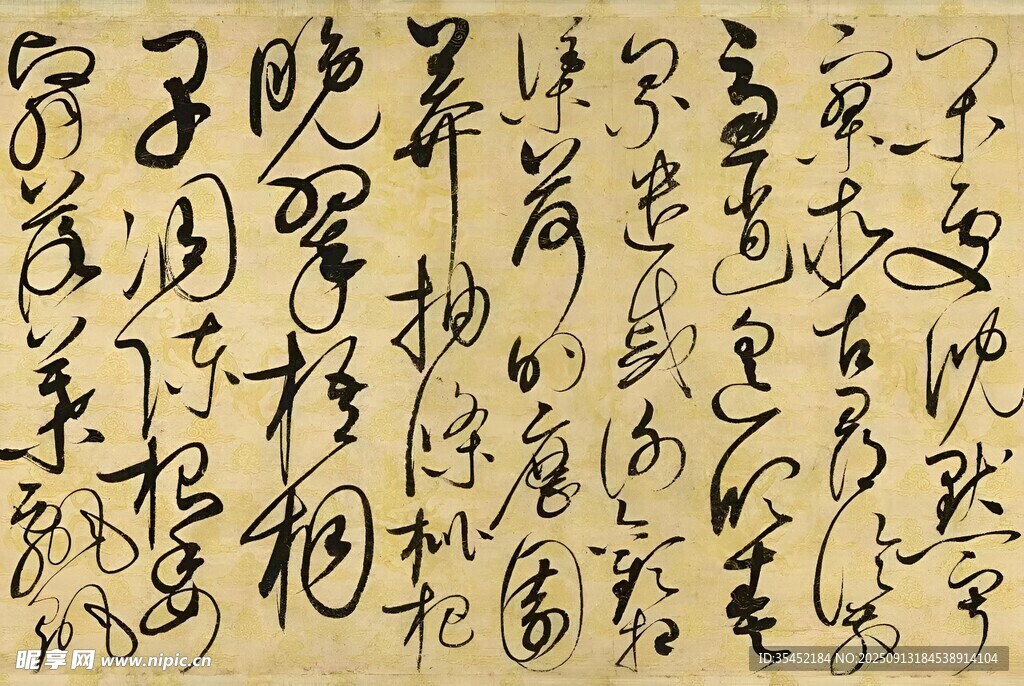 閑處沉默寂
寥求古尋論散
慮逍遙欣奏
累遣慼謝歡招
渠荷的歷園
莽抽條枇杷
晚翠梧桐
早凋陳根委
翳落葉飄颻
昵享网 www.nipic.cn
ID:35452184 NO:20250913184538914104